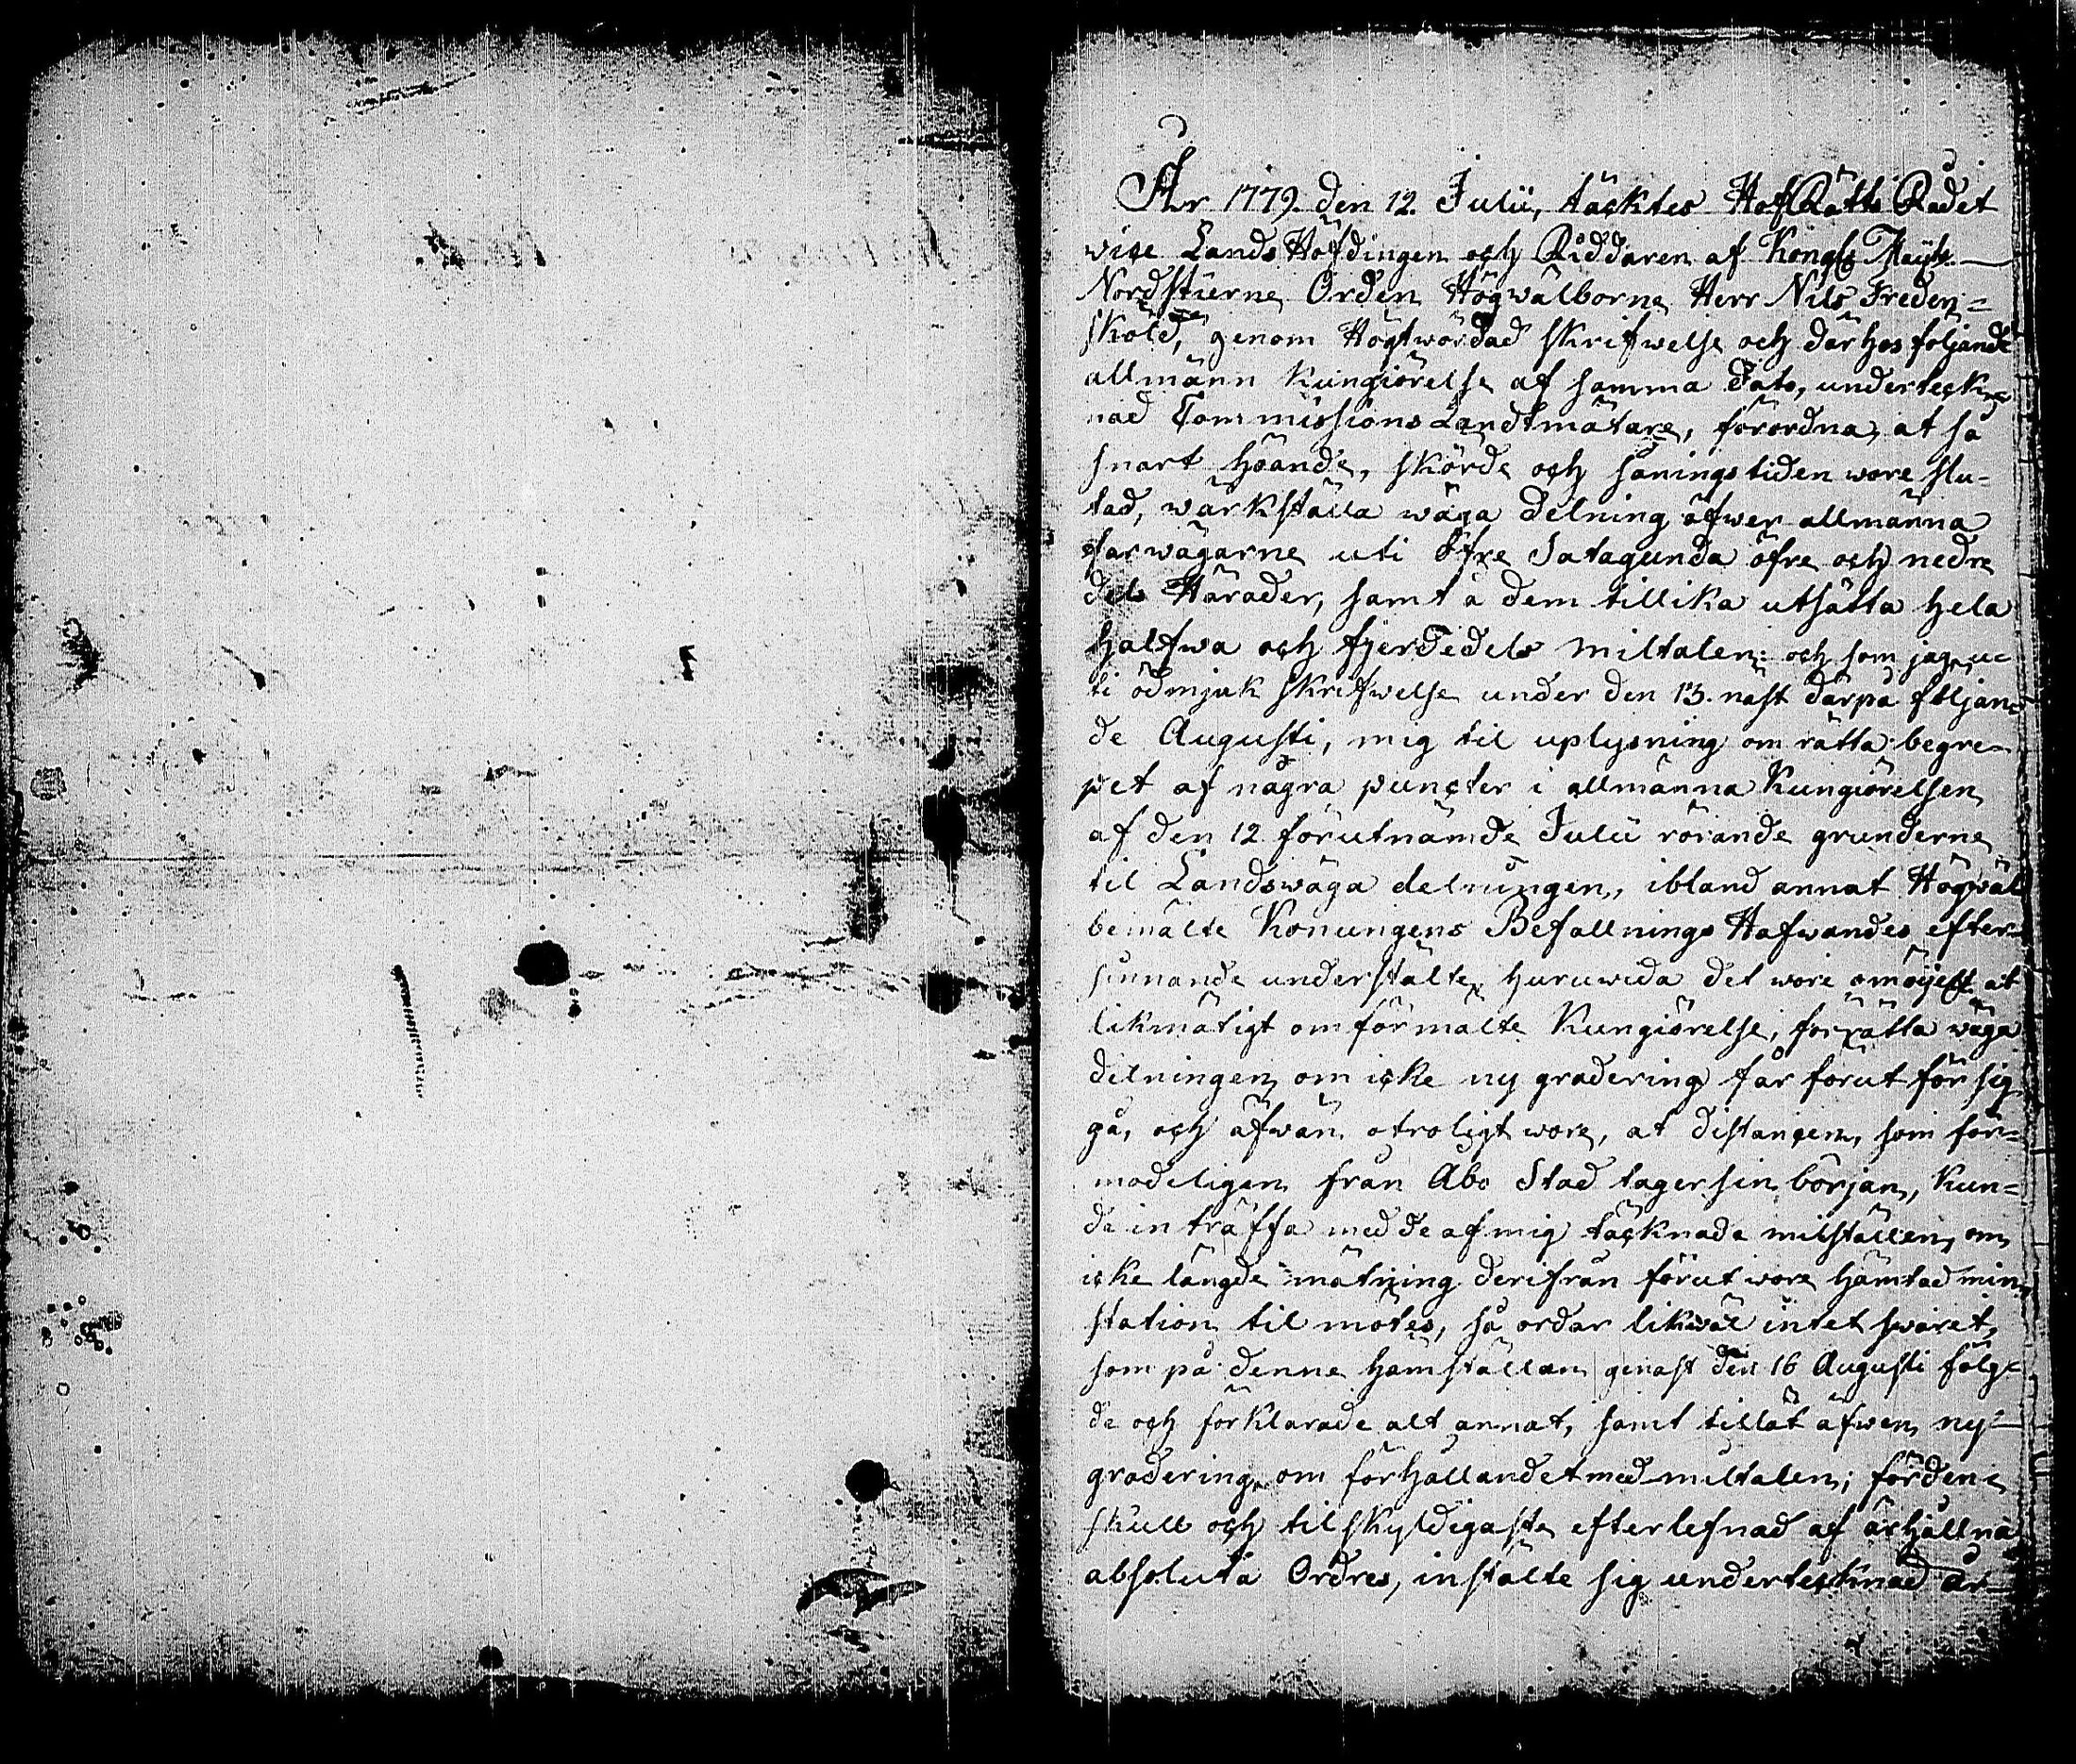 År 1779. den 12. Julii, täcktes HofRätts Rådet
vice LandsHöfdingen och Riddaren af Kongl. Maij:ts
Nordstierne Orden Högwälborne Herr Nils Freden=
sköld, genom Högtwördad skrifwelse och därhos följande
allmänn Kungiörelse af samma Dato, underteck=
nad Commissions Landtmätare, förordna, at så
snart höande, skörde och såningstiden wore slu-
tad, wärkställa wäga delning öfwer allmänna
farwägarne uti Öfre Satagunda öfre och nedre
dels Härader, samt å dem tillika utsätta hela
halfwa och fjerdedels miltalen: och som jag, u=
ti ödmjuk skrifwelse under den 13. näst därpå följan=
de Augusti, mig til uplysning om rätta begre=
pet af några puncter i allmänna Kungiörelsen
af den 12 förutnämde Julii rörande grunderne
til Landswäga delningen, ibland annat Högwäl
bemälte Konungens Befallnings Hafwandes efter=
sinnande understälte, huruwida det wore omöjeligt at
likmätigt omförmälte Kungiörelse, förrätta wäga
delningen om icke ny gradering får förut för sig
gå, och äfwän otroligt wore, at distancen, som för=
modeligen från Åbo Stad tager sin början, kun=
de inträffa med de af mig täcknade milställen, om
icke längde mätning derifrån förut wore hämtad min
station til mötes, så ordar likwäl intet swaret,
som på denne hämställan genast den 16 Augusti fölg=
de och förklarade alt annat, samt tillät äfwen ny=
gradering, om förhållandet med miltalen; förden=
skull och til skyldigaste efterlefnad af ärhållna
absoluta Ordres, instälte sig undertecknad är